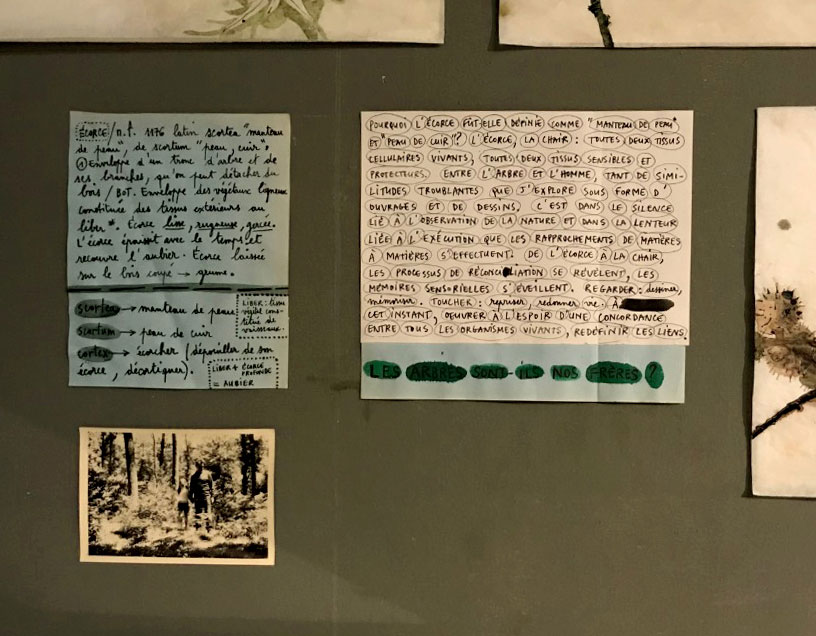 ÉCORCE / n.f. 1176 latin scortea "manteau
de peau", de scortum "peau, cuir".
① Enveloppe d'un tronc d'arbre et de
ses branches, qu'on peut détacher du
bois / BOT. Enveloppe des végétaux ligneux
constituée des tissus extérieurs au
liber *. Écorce lisse, rugueuse, gercée.
L'écorce épaissit avec le temps et
recouvre l'aubier. Écorce laissée
sur le bois coupé → grume.
scortea → manteau de peau
scortum → peau de cuir
cortex → écorcher (dépouiller de son
écorce, décortiquer).
LIBER : tissu
végétal cons-
titué de
vaisseaux.
LIBER + ÉCORCE
PROFONDE
= AUBIER
POURQUOI L'ÉCORCE FÛT-ELLE DÉFINIE COMME "MANTEAU DE PEAU"
ET "PEAU DE CUIR"? L'ÉCORCE, LA CHAIR : TOUTES DEUX TISSUS
CELLULAIRES VIVANTS, TOUTES DEUX TISSUS SENSIBLES ET
PROTECTEURS. ENTRE L'ARBRE ET L'HOMME, TANT DE SIMI-
LITUDES TROUBLANTES QUE J'EXPLORE SOUS FORME D'
OUVRAGES ET DE DESSINS. C'EST DANS LE SILENCE
LIÉ À L'OBSERVATION DE LA NATURE ET DANS LA LENTEUR
LIÉE À L'EXÉCUTION QUE LES RAPPROCHEMENTS DE MATIÈRES
À MATIÈRES S'EFFECTUENT. DE L'ÉCORCE À LA CHAIR,
LES PROCESSUS DE RÉCONCILIATION SE RÉVÈLENT, LES
MÉMOIRES SENSORIELLES S'ÉVEILLENT. REGARDER : dessiner,
mémoriser. TOUCHER : repriser, redonner vie. À
CET INSTANT, OEUVRER À L'ESPOIR D'UNE CONCORDANCE
ENTRE TOUS LES ORGANISMES VIVANTS, REDÉFINIR LES LIENS.
LES ARBRES SONT-ILS NOS FRÈRES ?